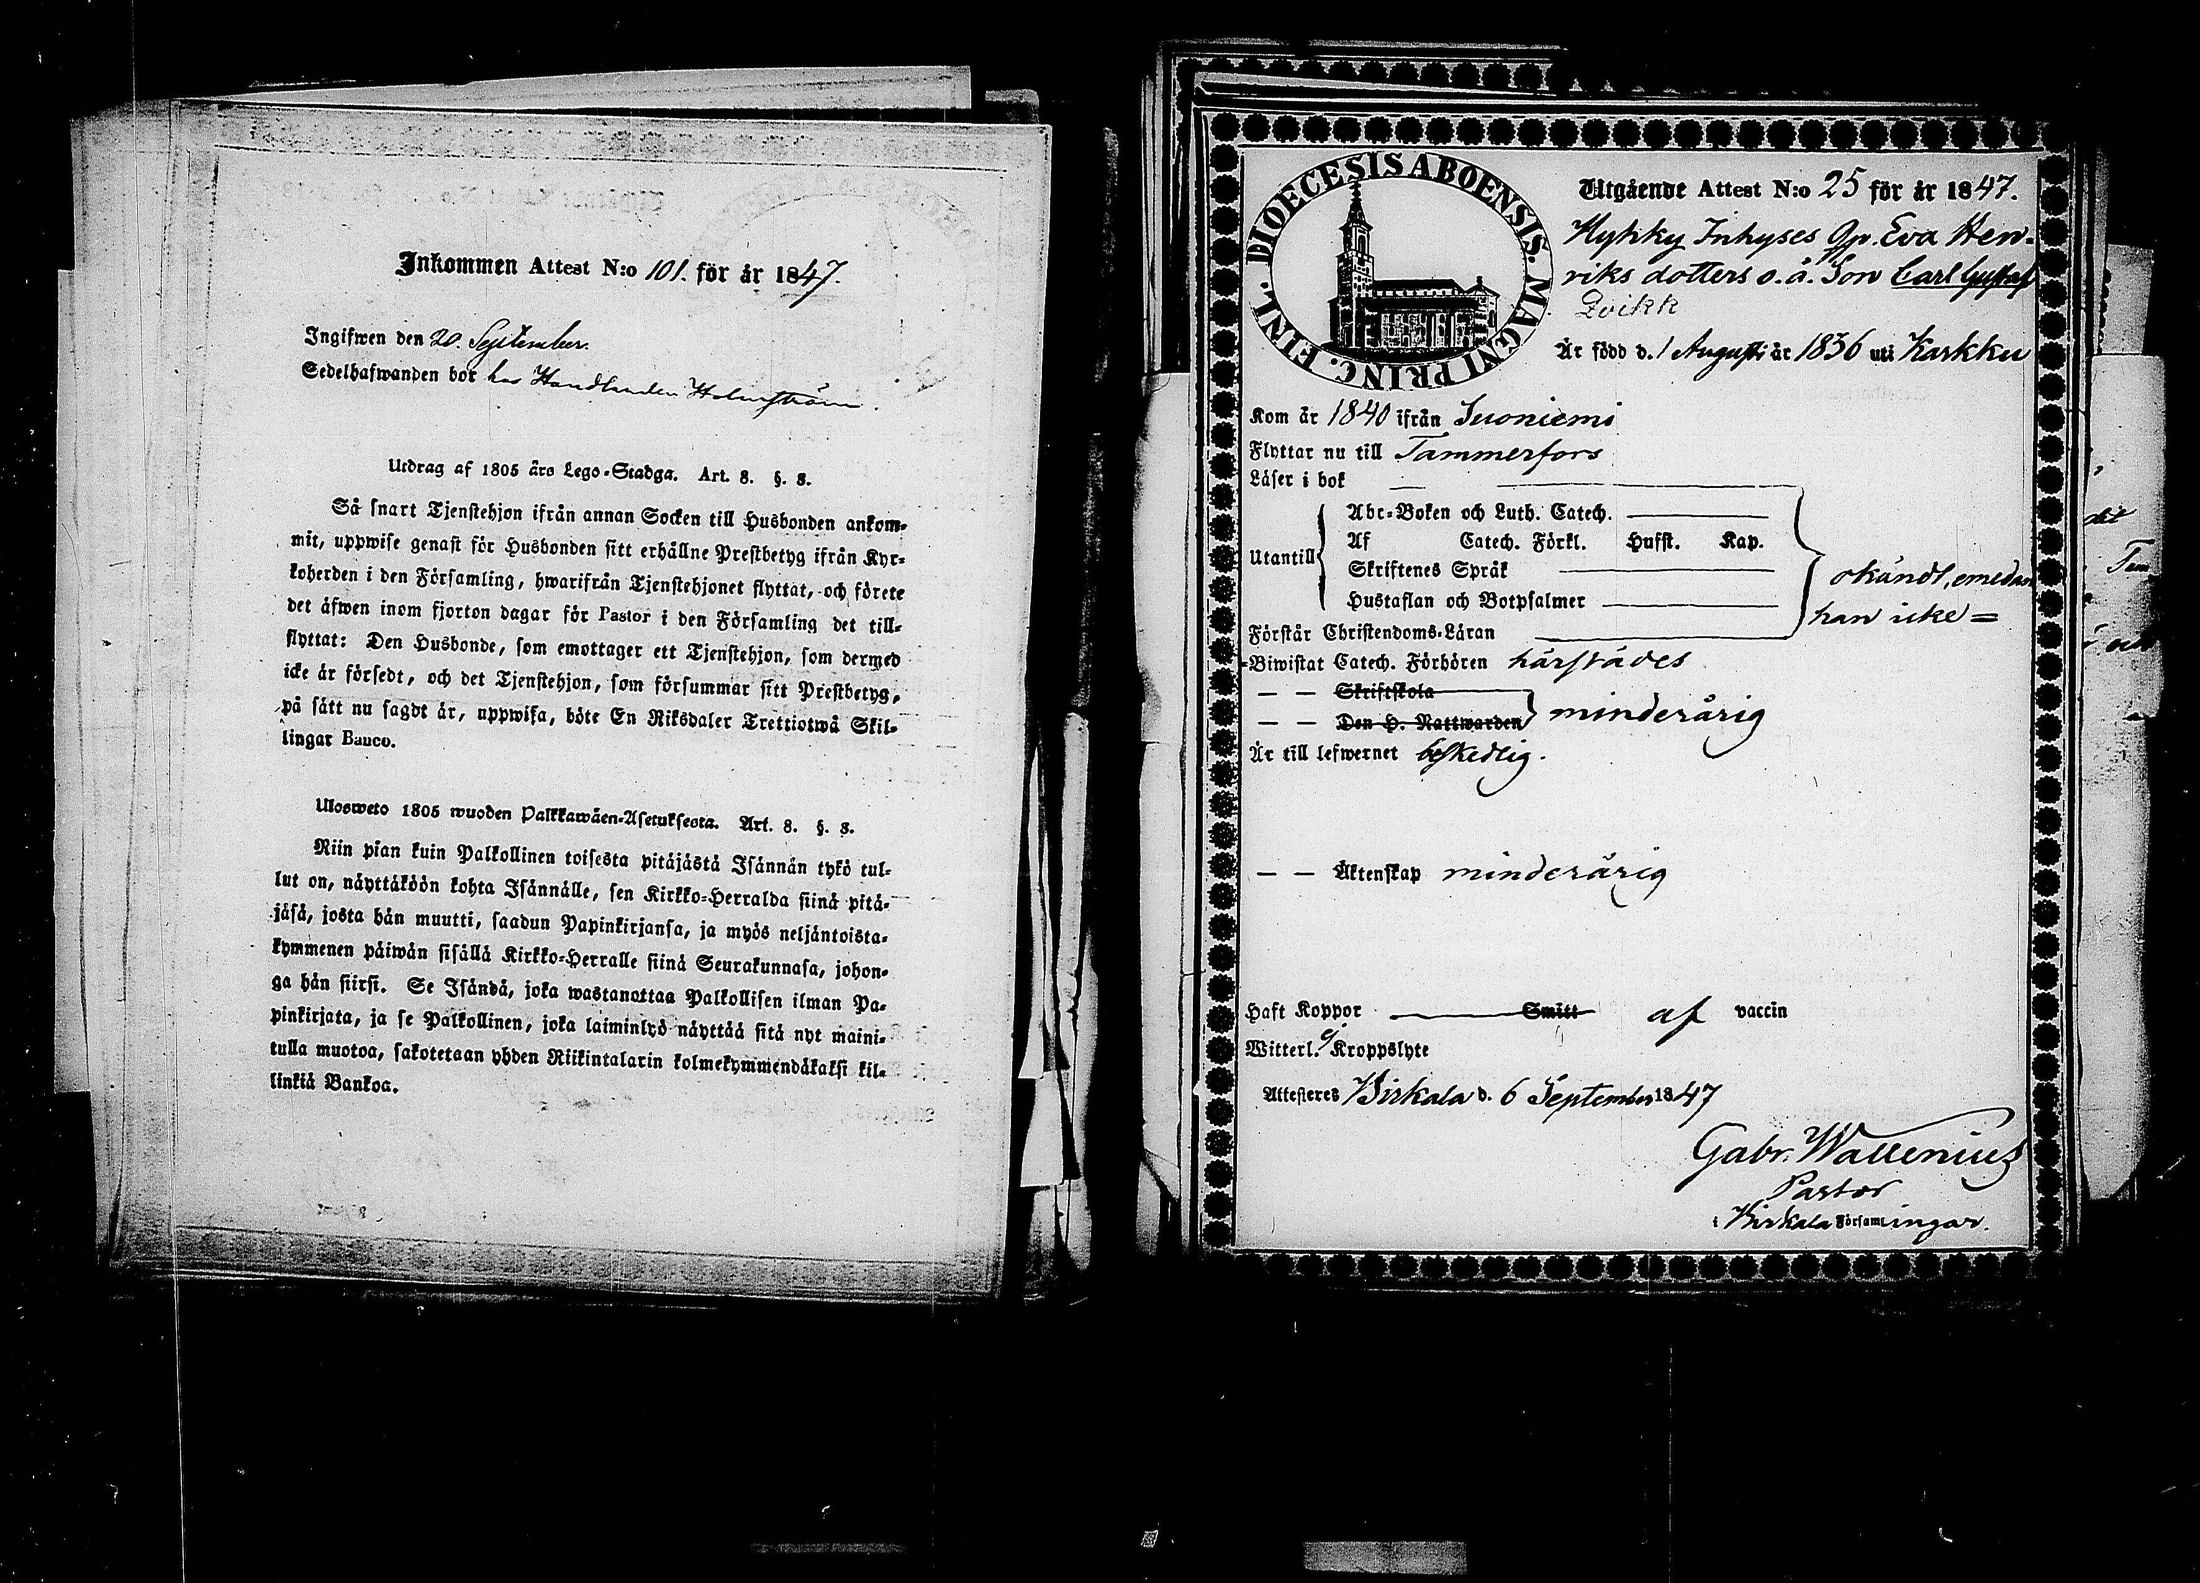 Inkommen Attest N:o 101. för år 1847.
Ingifwen den 20. September.
Sedelhafwanden bor hos Handlanden Holmström.
Utdrag af 1805 års Lego-Stadga. Art. 8. §. 8.
Så snart Tjenstehjon ifrån annan Socken till Husbonden ankom-
mit, uppwise genast för Husbonden sitt erhållne Prestbetyg ifrån Kyr-
koherden i den Församling, hwarifrån Tjenstehjonet flyttat, och förete
det äfwen inom fjorton dagar för Pastor i den Församling det till-
flyttat: Den Husbonde, som emottager ett Tjenstehjon, som dermed
icke är försedt, och det Tjenstehjon, som försummar sitt Prestbetyg,
på sätt nu sagdt är, uppwisa, böte En Riksdaler Trettiotwå Skil-
lingar Banco.
Ulosweto 1805 wuoden Palkkawäen-Asetuksesta. Art. 8. §. 8.
Niin pian kuin Palkollinen toisesta pitäjästä Isännän tykö tul-
lut on, näyttäköön kohta Isännälle, sen Kirkko-Herralda siinä pitä-
jäsä, josta hän muutti, saadun Papinkirjansa, ja myös neljäntoista-
kymmenen päiwän sisällä Kirkko-Herralle siinä Seurakunnasa, johon-
ga hän siirsi. Se Isändä, joka wastanottaa Palkollisen ilman Pa-
pinkirjata, ja se Palkollinen, joka laiminlyö näyttää sitä nyt maini-
tulla muotoa, sakotetaan yhden Riikintalarin kolmekymmendäkaksi kil-
linkiä Bankoa.
DIOECESIS ABOENSIS. MAGNI PRINC. FINL.
Utgående Attest N:o 25 för år 1847.
Hykky Inhyses Qp. Eva Hen-
riks dotters o. ä. Son Carl Gustaf
Qvikk
Är född d. 1 Augusti år 1836 uti Karkku
Kom år 1840 ifrån Suoniemi
Flyttar nu till Tammerfors
Läser i bok
Abc-Boken och Luth. Catech.
Utantill Af Catech. Förkl. Husst. Kap.
Skriftenes Språk
okändt, emedan
Hustaflan och Botpsalmer
han icke =
Förstår Christendoms-Läran
=Biwistat Catech. Förhören härstädes
— — Skriftskola
— — Den H. Nattwarden minderårig
Är till lefwernet beskedlig.
— — Äktenskap minderårig
Haft Koppor Smitt af vaccin
Witterl. Kroppslyte
Attesteres Birkala d. 6 September 1847
Gabr. Wallenius
Pastor
i Birkala Församlingar.